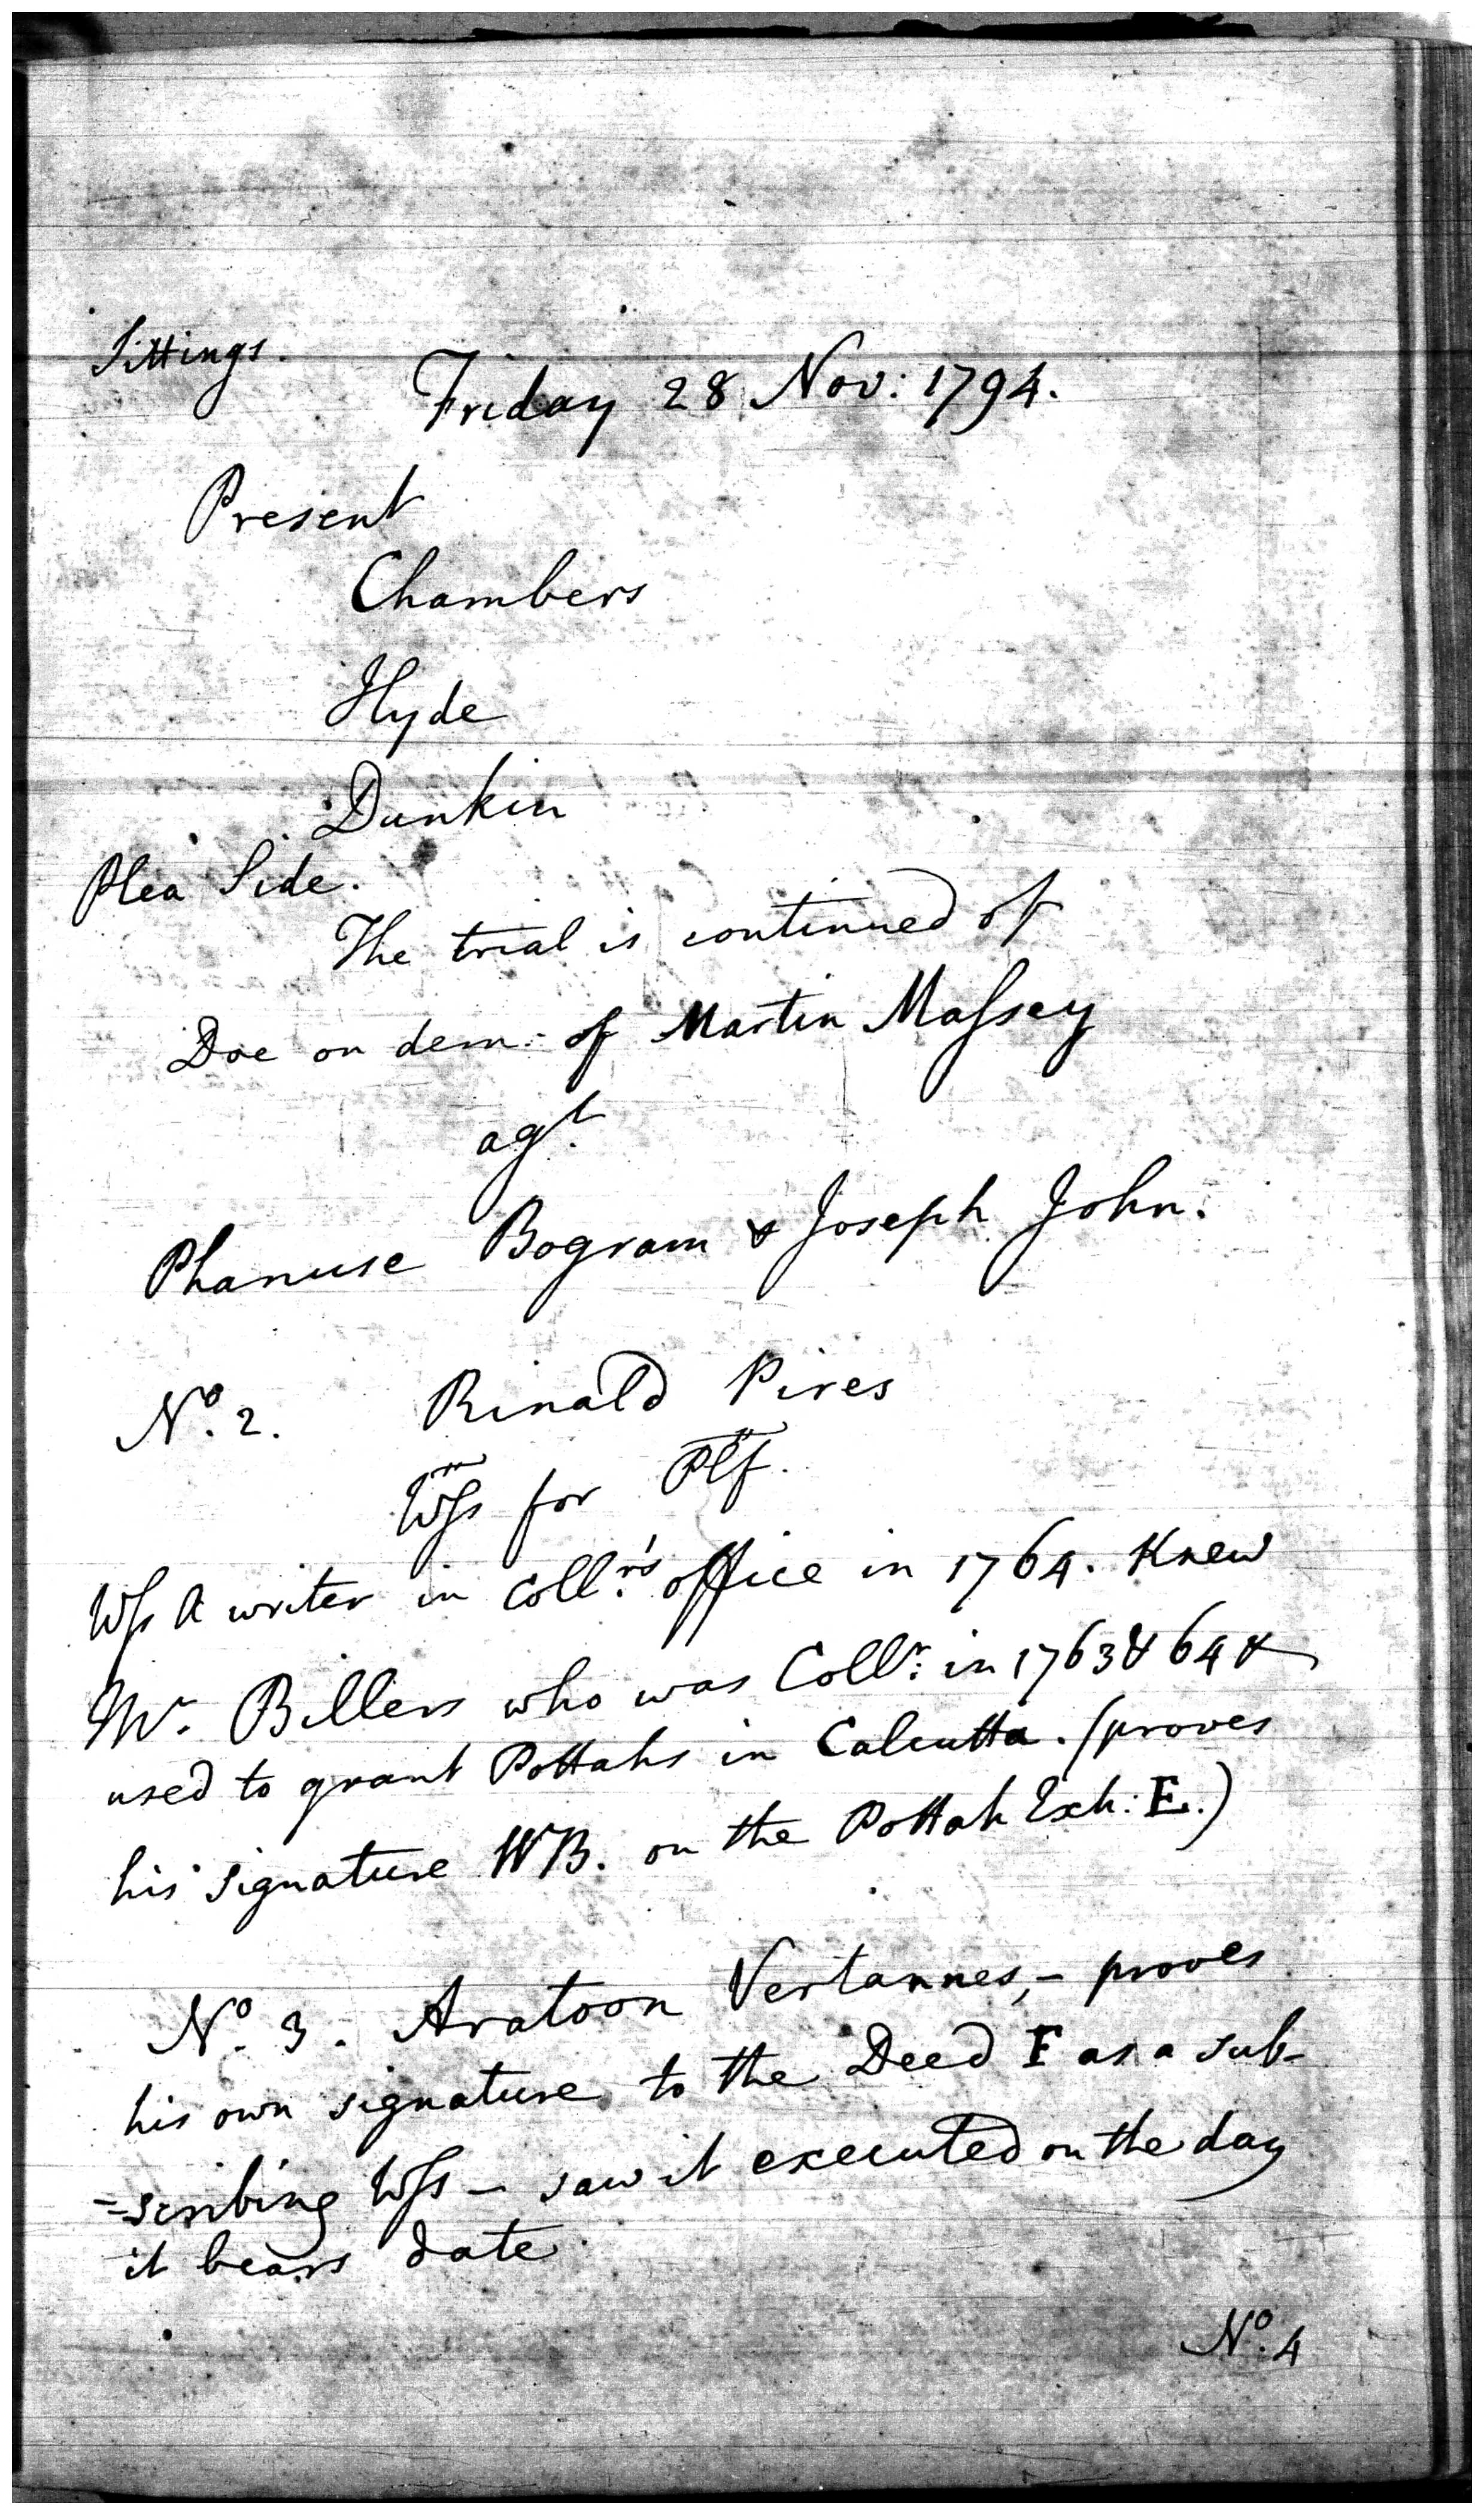 Sittings.
Friday 28 Nov: 1794.
Present
Chambers
Hyde
Dunkin
Plea Side.
The trial is continued of
Doe on dem: of Martin Maſsey
agt.
Phanuse Bogram & Joseph John.
No. 2. Rinald Pires
Wſs for Plf.
Wſs A writer in Coll:r's office in 1764. Knew
Mr. Billers who was Collr: in 1763 & 64 &
used to grant Pottahs in Calcutta. (proves
his signature WB. on the Pottah Exh: E.)
No. 3. Aratoon Vertannes, - proves
his own signature to the Deed F as a sub-
=scribing Wſs - saw it executed on the day
it bears date
No. 4